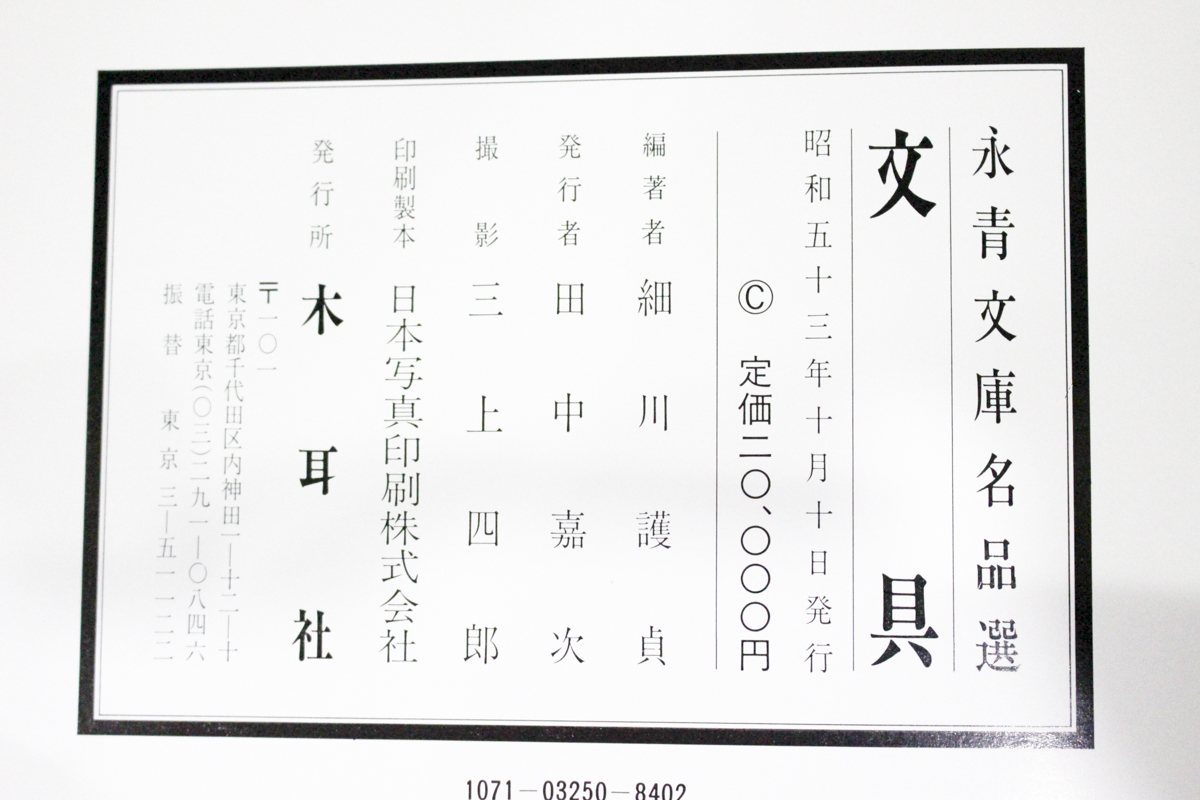 永青文庫名品選
文具
昭和五十三年十月十日発行
Ⓒ 定価二〇、〇〇〇円
編著者 細川護貞
発行者 田中嘉次
撮影 三上四郎
印刷製本 日本写真印刷株式会社
発行所 木耳社
〒一〇一
東京都千代田区内神田一―十二―十
電話東京(〇三)二九一―〇八四六
振替 東京三―五一一二二
1071―03250―8402